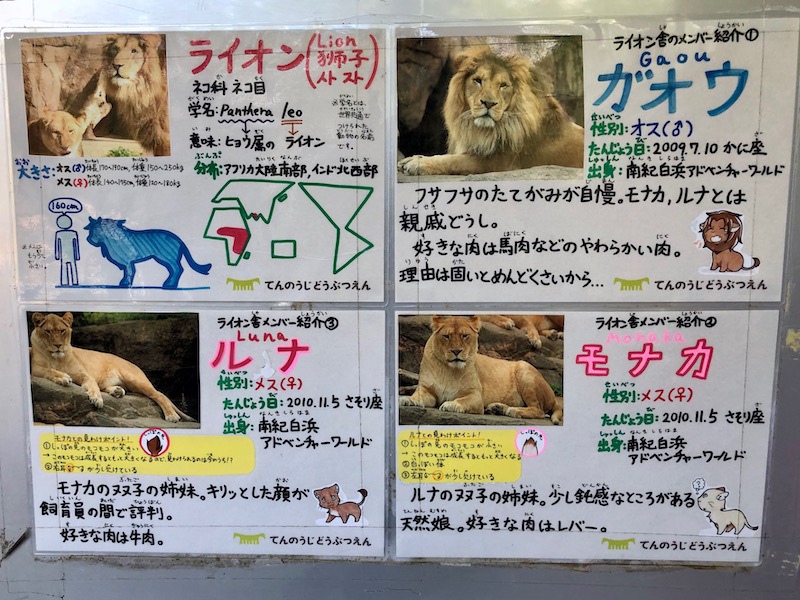 ライオン
Lion
獅子
사자
ネコ科 ネコ目
学名:Panthera leo
意味:ヒョウ属の ライオン
分布:アフリカ大陸南部,インド北西部
大きさ:オス(♂)体長170~190cm,体重150~250kg
メス(♀)体長140~175cm,体重120~180kg
160cm
てんのうじどうぶつえん
ライオン舎のメンバー紹介①
Gaou
ガオウ
性別:オス(♂)
たんじょう日:2009.7.10 かに座
出身:南紀白浜アドベンチャーワールド
フサフサのたてがみが自慢。モナカ,ルナとは
親戚どうし。
好きな肉は馬肉などのやわらかい肉。
理由は固いとめんどくさいから…
てんのうじどうぶつえん
ライオン舎メンバー紹介③
Luna
ルナ
性別:メス(♀)
たんじょう日:2010.11.5 さそり座
出身:南紀白浜
アドベンチャーワールド
モナカとの見わけポイント!
①しっぽの先のモコモコが大きい
モナカの双子の姉妹。キリッとした顔が
飼育員の間で評判。
好きな肉は牛肉。
てんのうじどうぶつえん
ライオン舎メンバー紹介②
monaka
モナカ
性別:メス(♀)
たんじょう日:2010.11.5 さそり座
出身:南紀白浜
アドベンチャーワールド
ルナとの見わけポイント!
②白っぽい体
ルナの双子の姉妹。少し鈍感なところがある
天然娘。好きな肉はレバー。
てんのうじどうぶつえん